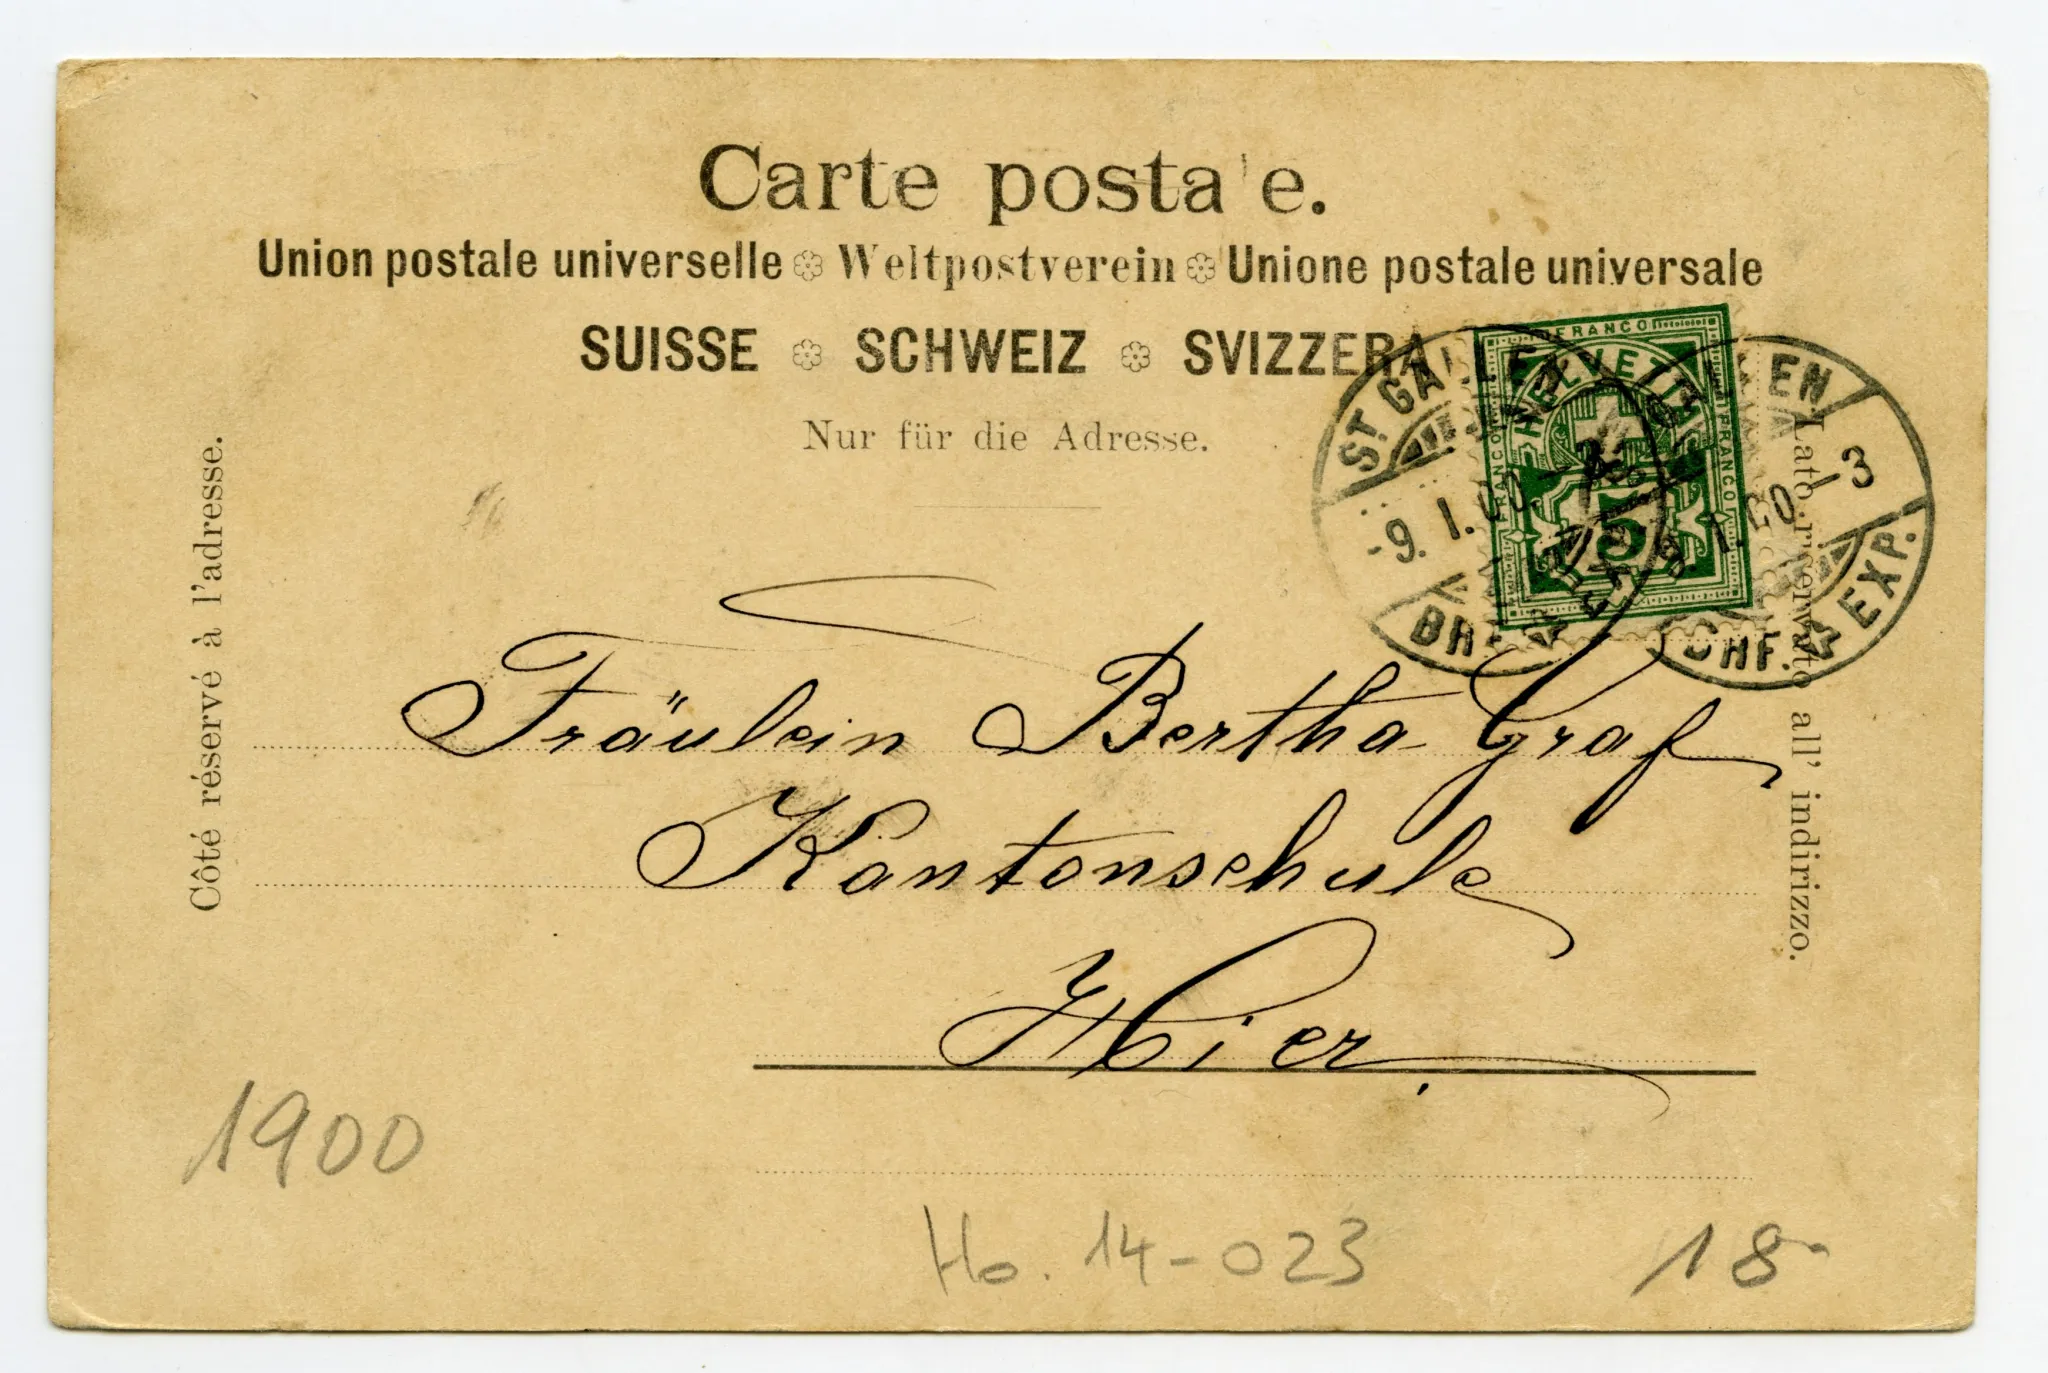 Carte postale.
Union postale universelle Weltpostverein Unione postale universale
SUISSE SCHWEIZ SVIZZERA
Nur für die Adresse.
Côté réservé à l'adresse.
Lato riservato all' indirizzo.
FRANCO
HELVETIA
FRANCO
FRANCO
5
ST. GALLEN
-9. I. 00.
LLEN
-3
BHF. ☆ EXP.
Fräulein Bertha Graf
Kantonschule
Hier.
1900
Ho. 14-023
18-